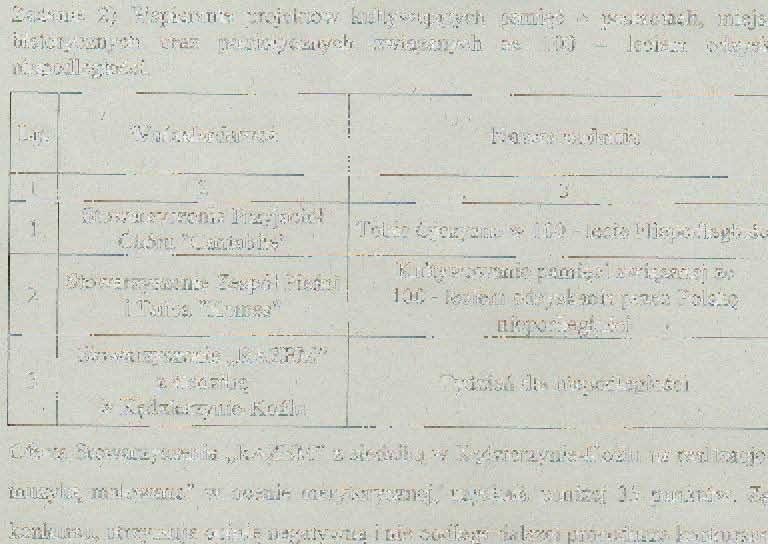 Zadanie 2) Wspieranie projektów kultywujących pamięć o postaciach, miejs
historycznych oraz patriotycznych związanych ze 100 – leciem odzysk
niepodległości.
Lp. Wnioskodawca Nazwa zadania
1 2 3
1. Stowarzyszenie Przyjaciół
Chóru "Cantabile" Tobie Ojczyzno w 100 - lecie Niepodległośc
2. Stowarzyszenie Zespół Pieśni
i Tańca "Komes" Kultywowanie pamięci związanej ze
100 - leciem odzyskania przez Polskę
niepodległości
3. Stowarzyszenie
z siedzibą
w Kędzierzynie-Koźlu Tydzień dla niepodległości
Oferta Stowarzyszenia z siedzibą w Kędzierzynie-Koźlu na realizację
muzyką malowane" w ocenie merytorycznej, uzyskała poniżej 35 punktów. Zg
konkursu, otrzymuje opinię negatywną i nie podlega dalszej procedurze konkursow